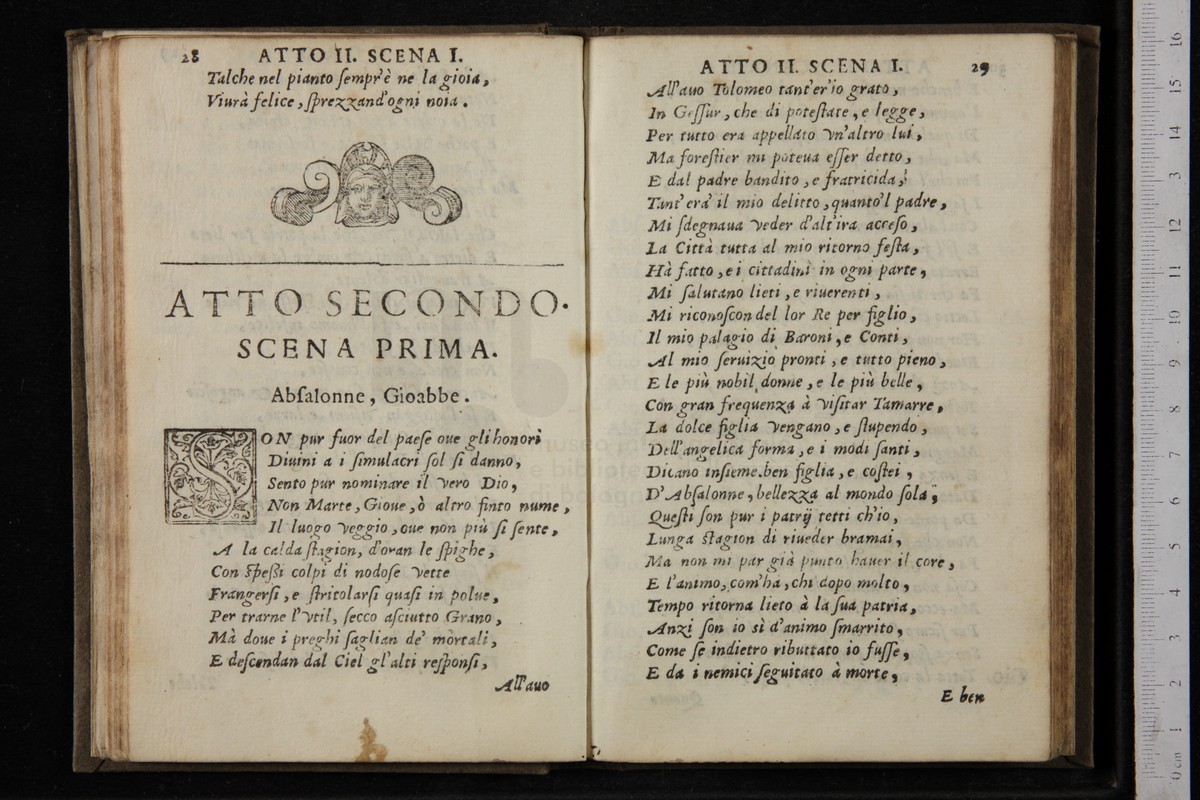 28 ATTO II. SCENA I.
Talche nel pianto ſempr'è ne la gioia,
Viurà felice, ſprezzand'ogni noia.
ATTO SECONDO.
SCENA PRIMA.
Abſalonne, Gioabbe.
SON pur fuor del paeſe oue gli honori
Diuini a i ſimulacri ſol ſi danno,
Sento pur nominare il vero Dio,
Non Marte, Gioue, ò altro finto nume,
Il luogo veggio, oue non più ſi ſente,
A la calda ſtagion, d'oran le ſpighe,
Con ſpeßi colpi di nodoſe vette
Frangerſi, e ſtritolarſi quaſi in polue,
Per trarne l'vtil, ſecco aſciutto Grano,
Mà doue i preghi ſaglian de' mortali,
E deſcendan dal Ciel gl'alti reſponſi,
All'auo
ATTO II. SCENA I. 29
All'auo Tolomeo tant'er'io grato,
In Geſſur, che di poteſtate, e legge,
Per tutto era appellato vn'altro lui,
Ma foreſtier mi poteua eſſer detto,
E dal padre bandito, e fratricida,
Tant'era' il mio delitto, quanto'l padre,
Mi ſdegnaua veder d'alt'ira acceſo,
La Città tutta al mio ritorno feſta,
Hà fatto, e i cittadini in ogni parte,
Mi ſalutano lieti, e riuerenti,
Mi riconoſcon del lor Re per figlio,
Il mio palagio di Baroni, e Conti,
Al mio ſeruizio pronti, e tutto pieno,
E le più nobil donne, e le più belle,
Con gran frequenza à viſitar Tamarre,
La dolce figlia vengano, e ſtupendo,
Dell'angelica forma, e i modi ſanti,
Dicano inſieme.ben figlia, e coſtei,
D'Abſalonne, bellezza al mondo ſola,
Queſti ſon pur i patrij tetti ch'io,
Lunga ſtagion di riueder bramai,
Ma non mi par già punto hauer il core,
E l'animo, com'ha, chi dopo molto,
Tempo ritorna lieto à la ſua patria,
Anzi ſon io sì d'animo ſmarrito,
Come ſe indietro ributtato io fuſſe,
E da i nemici ſeguitato à morte,
E ben
0 cm 1 2 3 4 5 6 7 8 9 10 11 12 13 14 15 16